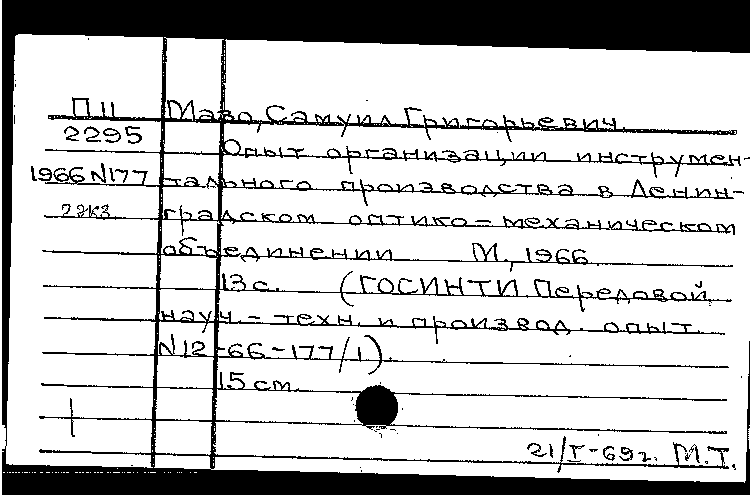 П11 Мазо, Самуил Григорьевич.
2295 Опыт организации инструмен-
1966 N177 тального производства в Ленин-
2экз. градском оптико-механическом
объединении М., 1966.
13 с. (ГОСИНТИ. Передовой
науч.-техн. и производ. опыт.
N12-66-177/1).
15 см.
21/I-69г. М.Т.